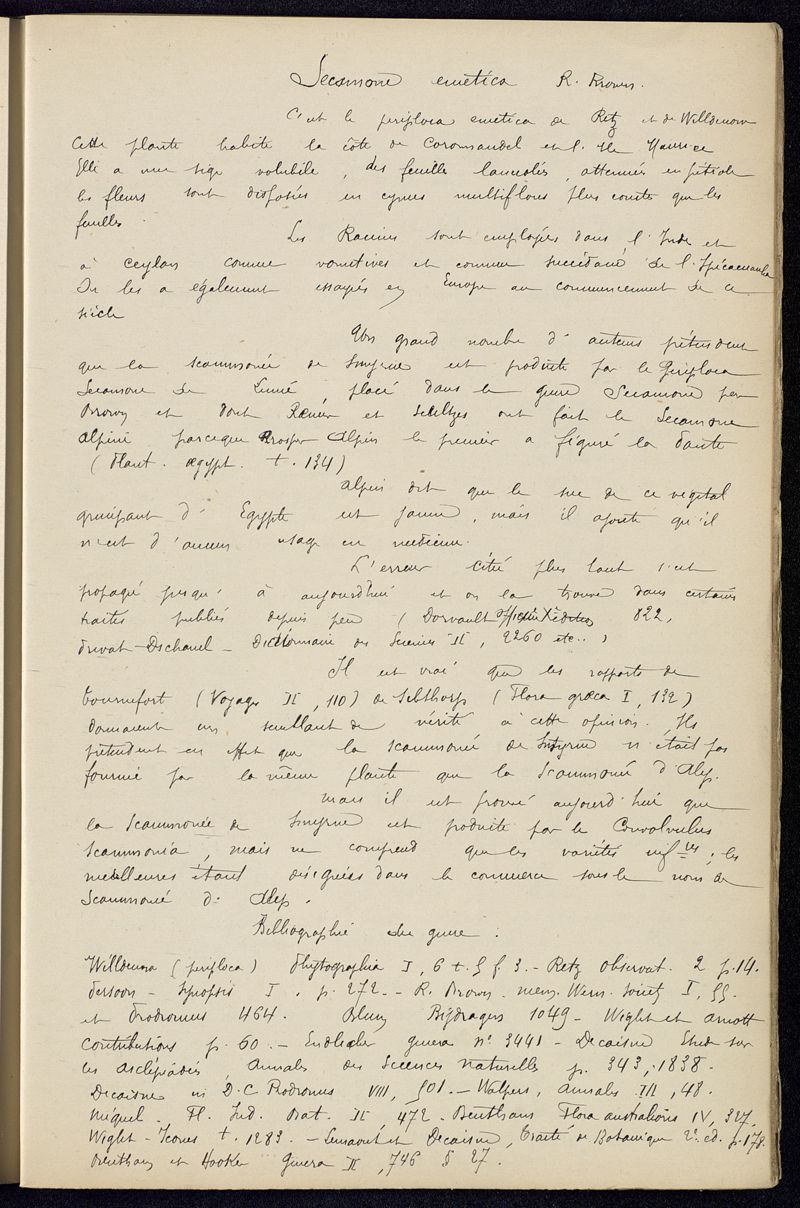 Secamone emetica R. Brown.
C'est le periploca emetica de Retz et de Willdenow
Cette plante habite la côte de Coromandel et l'Ile Maurice
Elle a une tige volubile, des feuilles lancolés, attenués en pétiole
les fleurs sont disposées en cymes multiflores plus courtes que les
feuilles.
Les Racines sont employées dans l'Inde et
à Ceylan comme vomitives et comme succédané de l'Ipécacuanha
On les a également essayés en Europe au commencement de ce
siècle
Un grand nombre d'auteurs prétendent
que la scammonée de Smyrne est produite par le Periploca
Secamone de Linné, placé dans le genre Secamone par
Brown et dont Rœmer et Schltzes ont fait le Secamone
Alpini parceque Prosper Alpin le premier a figuré la plante
(Plant. ægypt. t. 134)
Alpin dit que le suc de ce végétal
grimpant d'Egypte est jaune, mais il ajoute qu'il
n'est d'aucun usage en médecine.
L'erreur citée plus haut s'est
propagé jusqu'à aujourd'hui et on la trouve dans certains
traités publiés depuis peu (Dorvault 822,
Privat-Deschanel - Dictionnaire des Sciences II, 2260 etc..)
Il est vrai que les rapports de
Tournefort (Voyages II, 110) de Sibthorp (Flora græca I, 132)
donnaient un semblant de vérité à cette opinion. Ils
prétendent en effet que la scammonée de Smyrne n'était pas
fournie par la même plante que la Scammonée d'Alep.
Mais il est prouvé aujourd'hui que
la scammonée de Smyrne est produite par le Convolvulus
Scammonia, mais ne comprend que les variétés infres, les
meilleures étant désignées dans le commerce sous le nom de
Scammonée d'Alep.
Bibliographie du genre :
Willdenow (periploca) Phytographia I, 6 t. 5 f. 3. - Retz Observat. 2 p. 14.
Persoon - Synopsis I. p. 272. - R. Brown. mem. Wern. Society I, 55.
et Prodromus 464. Blum Bijdragen 1049 - Wight et Arnott
Contributions p. 60. - Endlicher genera no 3441 - Decaisne Etud sur
les Asclépiadés, Annales des Sciences naturelles p. 343, 1838.
Decaisne in D.C Prodromus VIII, 501. - Walpers, Annales III, 48.
Miquel - Fl. Ind. Bat. II 472 - Bentham Flora australiensis IV, 327.
Wight - Icones t. 1283. - Lemaout et Decaisne, Traité de Botanique 2e ed. p. 178.
Bentham et Hooker Genera II, 746 § 27.